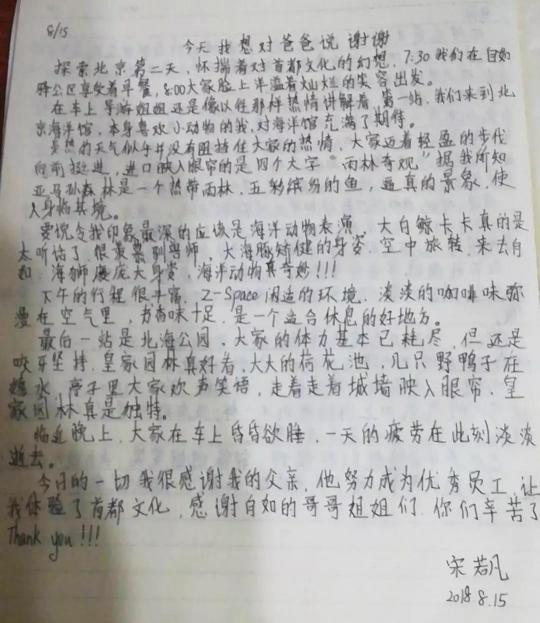 8/15
今天我想对爸爸说 谢谢
探索北京第二天,怀揣着对首都文化的幻想,7:30我们在自如
驿公区享受着早餐,8:00大家脸上洋溢着灿烂的笑容出发。
在车上导游姐姐还是像以往那样热情讲解着,第一站,我们来到北
京海洋馆,本身喜欢小动物的我,对海洋馆充满了期待。
炎热的天气似乎并没有阻挡住大家的热情,大家迈着轻盈的步伐
向前挺进,进口映入眼帘的是四个大字"雨林奇观"据我所知
亚马孙森林是一个热带雨林,五彩缤纷的鱼,逼真的景象,使
人身临其境。
要说令我印象最深的应该是海洋动物表演,大白鲸卡卡真的是
太听话了,很亲昵训导师,大海豚矫健的身姿,空中旋转,来去自
如,海狮庞大身姿,海洋动物真奇妙!!!
下午的行程很丰富,Z-Space闲适的环境,淡淡的咖啡味弥
漫在空气里,书香味十足,是一个适合休息的好地方。
最后一站是北海公园,大家的体力基本已耗尽,但还是
咬牙坚持,皇家园林真好看,大大的荷花池,几只野鸭子在
水,亭子里大家欢声笑语,走着走着城墙映入眼帘,皇
家园林真是独特。
临近晚上,大家在车上昏昏欲睡,一天的疲劳在此刻淡淡
逝去。
今日的一切我很感谢我的父亲,他努力成为优秀员工,让
我体验了首都文化,感谢自如的哥哥姐姐们,你们辛苦了
Thank you!!!
宋若凡
2018.8.15